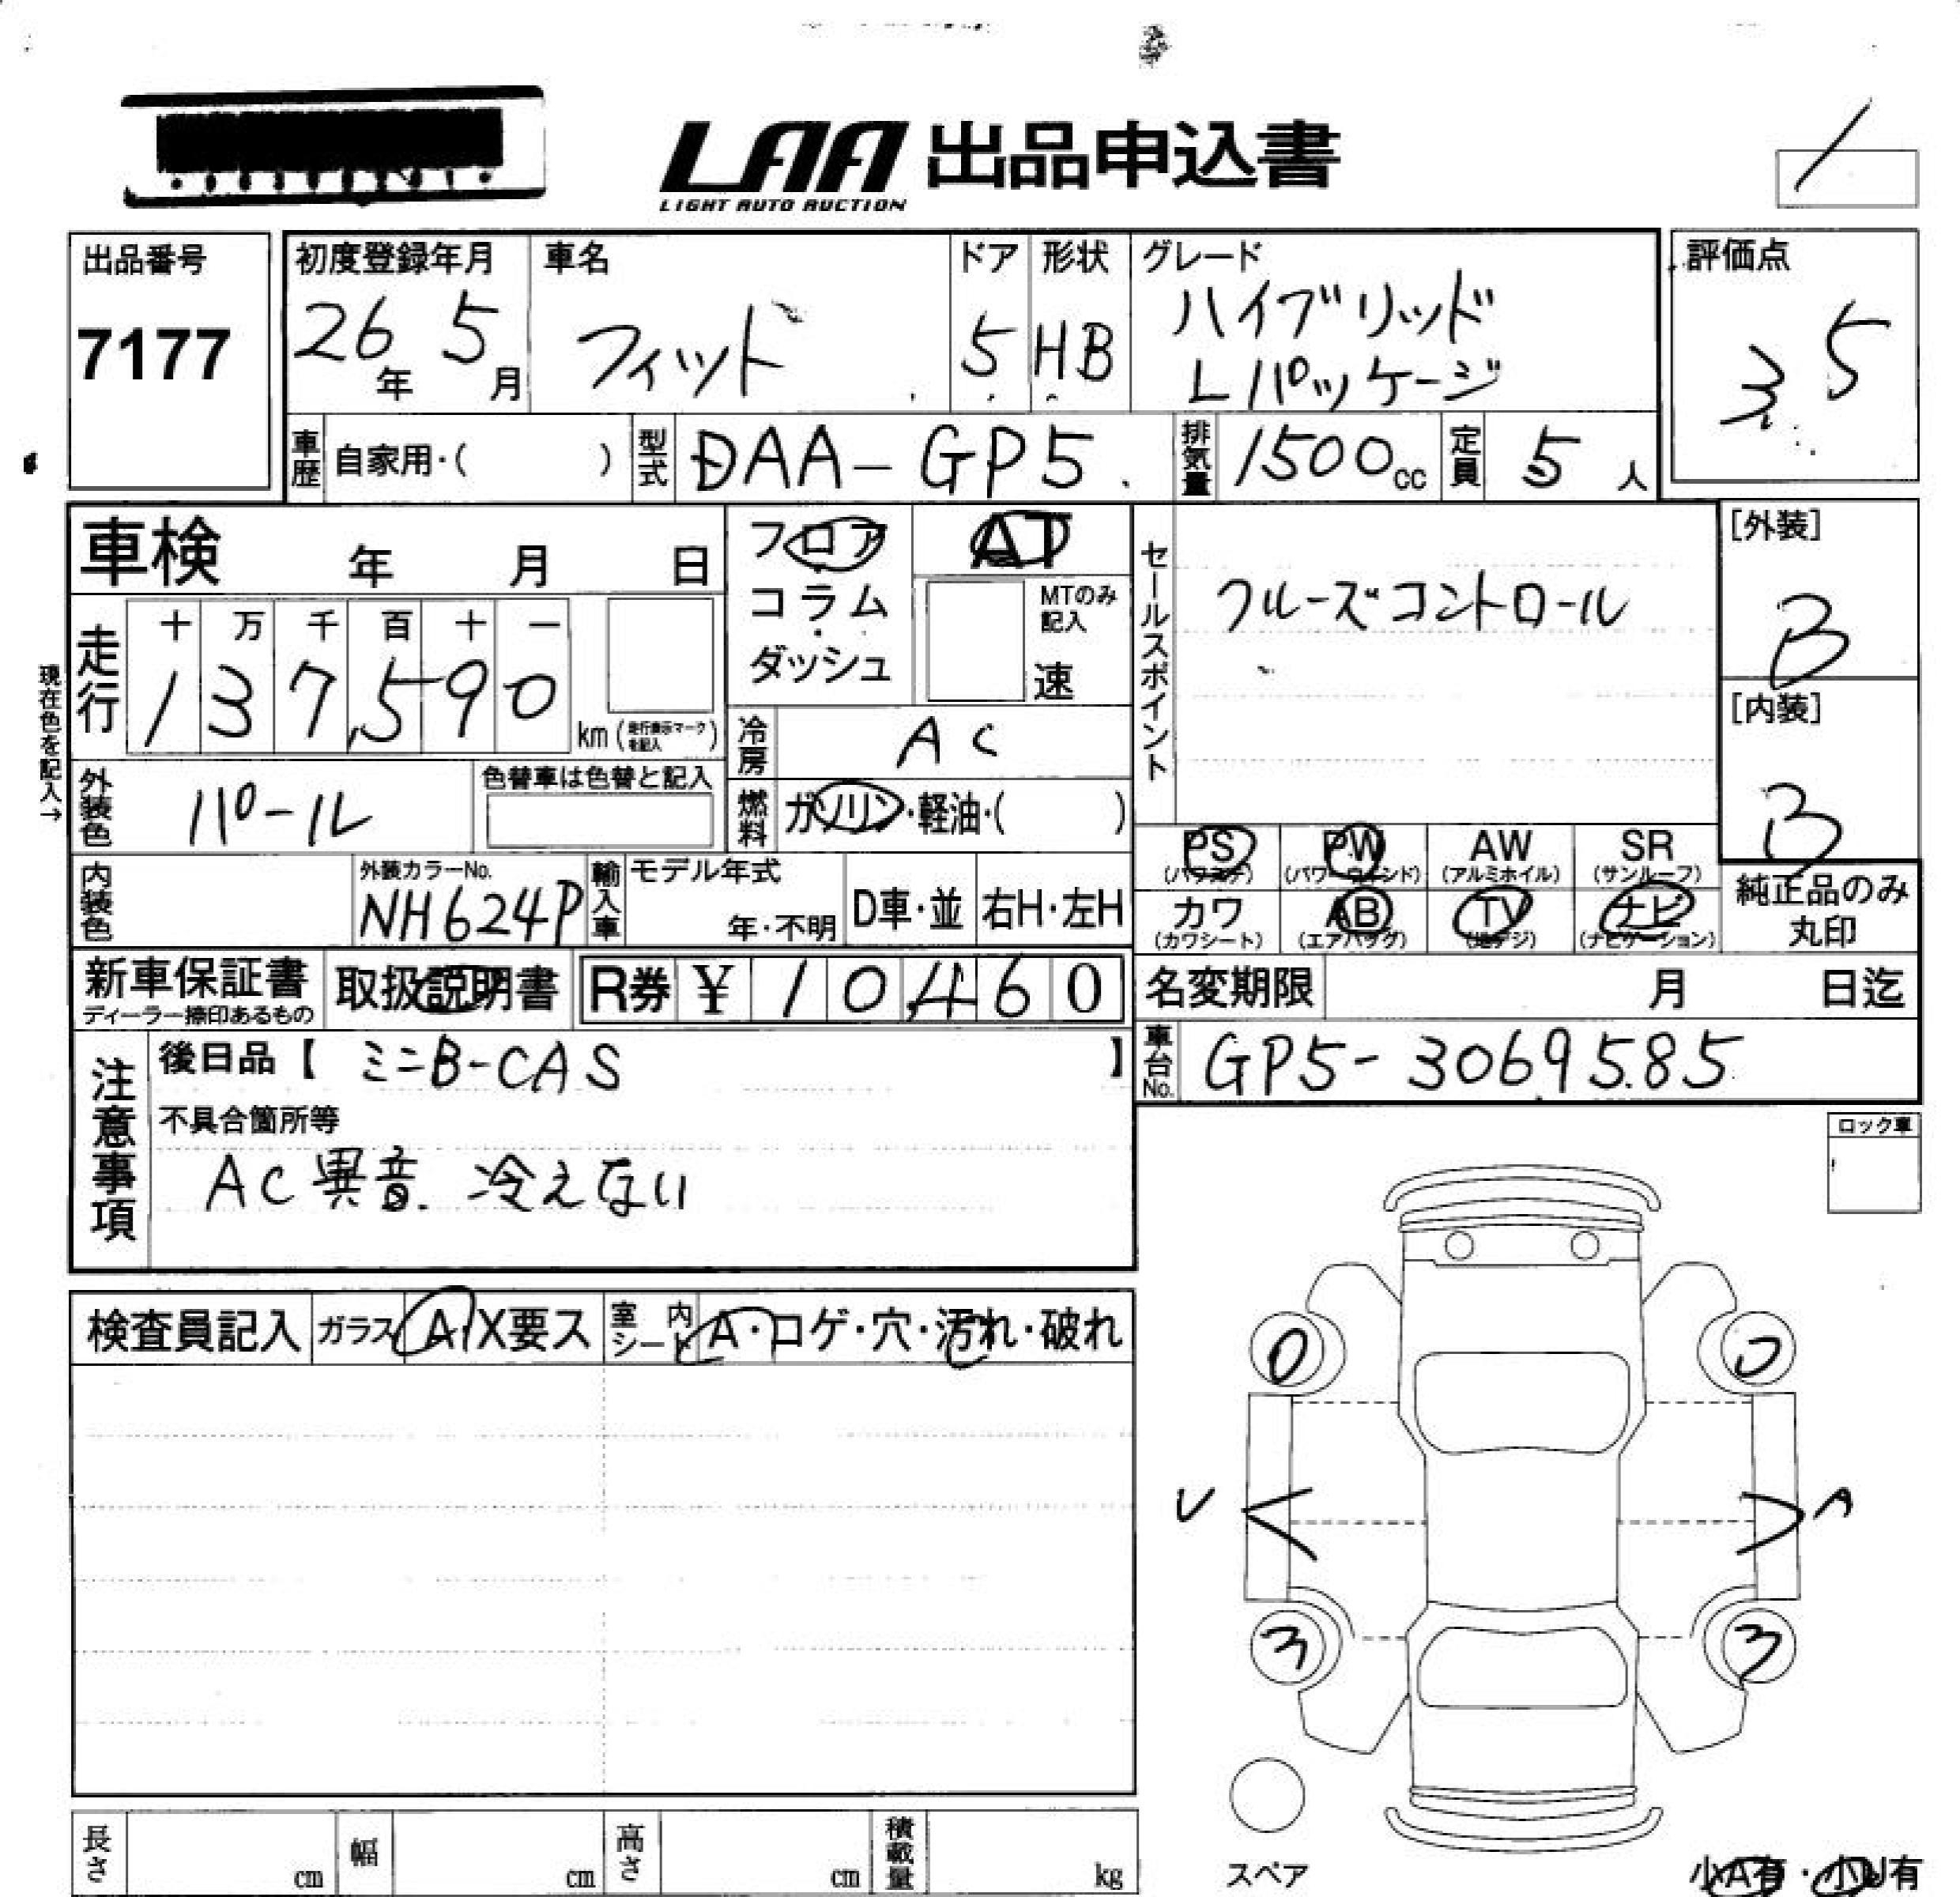 LAA 出品申込書
LIGHT AUTO AUCTION
出品番号
7177
初度登録年月
26年 5月
車名
フィット
ドア
5
形状
HB
グレード
ハイブリッド
Lパッケージ
評価点
3.5
車歴 自家用・( )
型式 DAA-GP5
排気量 1500cc
定員 5人
車検 年 月 日
フロア
コラム
ダッシュ
AT
MTのみ
記入
速
セールスポイント
クルーズコントロール
[外装]
B
[内装]
B
現在色を記入→
走行
十 万 千 百 十 一
137,590
km(走行表示マークを記入)
冷房 AC
外装色 パール
色替車は色替と記入
燃料 ガソリン・軽油・( )
内装色
外装カラーNo.
NH624P
輸入車
モデル年式
年・不明
D車・並
右H・左H
PS
(パワステ)
PW
(パワーウィンド)
AW
(アルミホイル)
SR
(サンルーフ)
カワ
(カワシート)
AB
(エアバッグ)
TV
(地デジ)
ナビ
(ナビゲーション)
純正品のみ
丸印
新車保証書
ディーラー捺印あるもの
取扱説明書
R券 ¥ 10,460
名変期限 月 日迄
車台No. GP5-3069585
注意事項
後日品【 ミニB-CAS 】
不具合箇所等
AC異音.冷えない
ロック車
検査員記入
ガラス A・X要ス
室内シート A・コゲ・穴・汚れ・破れ
0 0
U A
3 3
スペア
小A有・小U有
長さ cm
幅 cm
高さ cm
積載量 kg